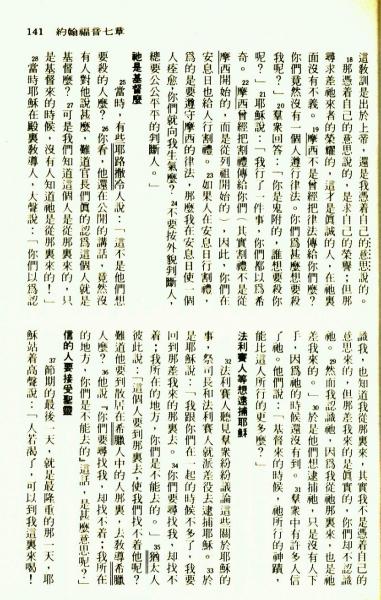 141 約翰福音七章
這教訓是出於上帝,還是我憑着自己的意思說的。
18那憑着自己的意思說的,是尋求自己的榮譽,但那
尋求差祂來者的榮耀的,這才是真誠的人,在祂裏
面沒有不義。19摩西不是曾經把律法傳給你們麼?
你們竟然沒有一個人遵行律法。你們爲甚麼想要殺
我呢?」20羣衆回答:「你是鬼附的,誰想要殺你
呢?」21耶穌說:「我行了一件事,你們都以爲希
奇。22摩西曾經把割禮傳給你們(其實割禮不是從
摩西開始的,而是從列祖開始的),因此,你們在
安息日也給人行割禮。23如果人在安息日行割禮,
爲的是要遵守摩西的律法,那麼我在安息日使一個
人痊愈,你們就向我生氣麼?24不要按外貌判斷人,
總要公公平平的判斷人。」
祂是基督麼
25當時,有些耶路撒冷人說:「這不是他們想
要殺的人麼?26你看,他還在公開的講話,竟然沒
有人對他說甚麼,難道官長們真的認爲這個人就是
基督麼?27可是我們知道這個人是從那裏來的,只
是基督來的時候,沒有人知道祂是從那裏來的!」
28當時耶穌在殿裏敎導人,大聲說:「你們以爲認
識我,也知道我從那裏來,其實我不是憑着自己的
意思來的,但那差我來的是真實的,你們却不認識
祂。29然而我認識祂,因爲我從祂那裏來,也是祂
差我來的。」30於是他們想逮捕祂,只是沒有人下
手,因爲祂的時候還沒有到。31羣衆中有許多人信
了祂。他們說:「基督來的時候,祂所行的神蹟,
能比這人所行的更多麼?」
法利賽人等想逮捕耶穌
32法利賽人聽見羣衆紛紛議論這些關於耶穌的
事,祭司長和法利賽人就派差役去逮捕耶穌。33於
是耶穌說:「我跟你們在一起的時候不多了,我要
回到那差我來的那裏去。34你們要尋找我,却找不
着;我所在的地方,你們是不能去的。」35猶太人
彼此說:「這個人要到那裏去,使我們找不着他呢?
難道他要到散居在希臘人中的人那裏,去敎導希臘
人麼?36他說『你們要尋找我,却找不着;我所在
的地方,你們是不能去的』這話,是甚麼意思呢?」
信的人要接受聖靈
37節期的最後一天,就是最隆重的那一天,耶
穌站着高聲說:「人若渴了,可以到我這裏來喝!